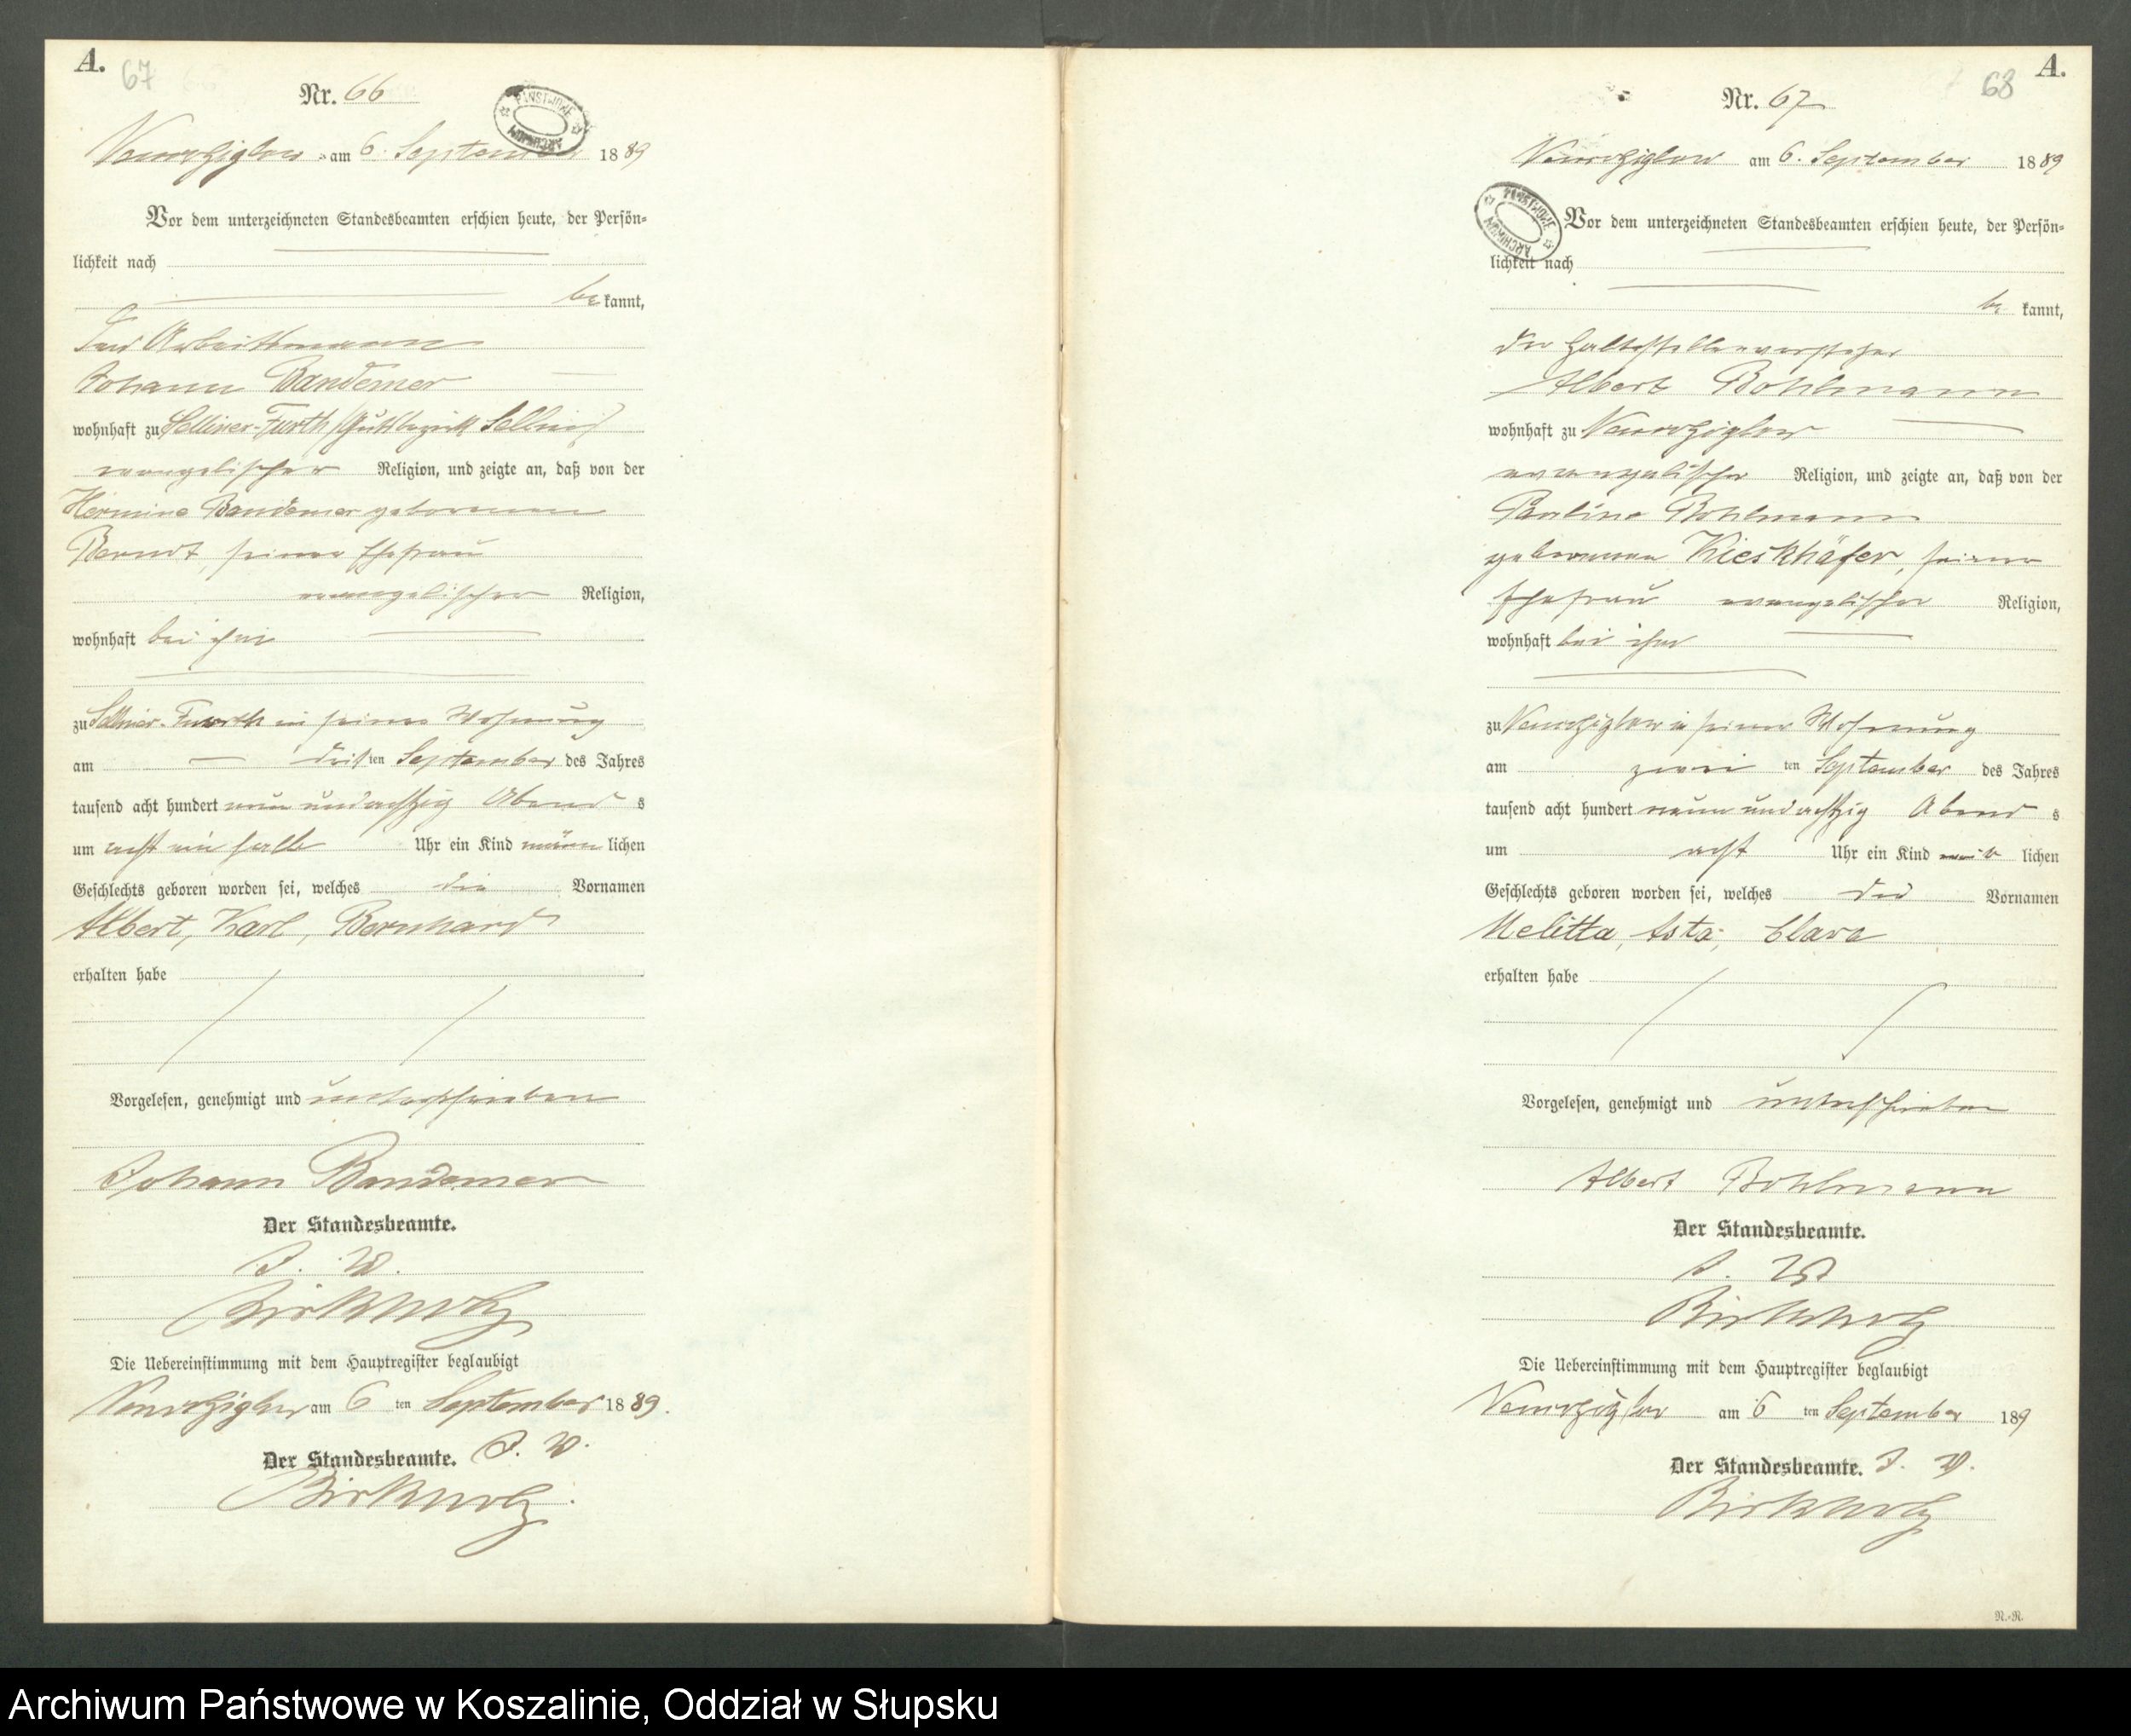 A. 67
Nr. 66
PAŃSTWOWE ARCHIWUM
am 6. September 1889
Vor dem unterzeichneten Standesbeamten erschien heute, der Persön=
lichkeit nach
be kannt,
Der Arbeitsmann
Johann Bandemer
wohnhaft zu Selliner-Furth (Gutsbezirk Sellin)
evangelischer Religion, und zeigte an, daß von der
Hermine Bandemer geborenen
Berndt, seiner Ehefrau
evangelischer Religion,
wohnhaft bei ihm
zu Selliner-Furth in seiner Wohnung
am dritten September des Jahres
tausend acht hundert neun und achtzig Abend s
um acht ein halb Uhr ein Kind männ lichen
Geschlechts geboren worden sei, welches die Vornamen
Albert, Karl, Bernhard
erhalten habe
Vorgelesen, genehmigt und unterschrieben
Johann Bandemer
Der Standesbeamte.
J. V.
Birkholz
Die Uebereinstimmung mit dem Hauptregister beglaubigt
am 6 ten September 1889.
Der Standesbeamte. J. V.
Birkholz.
A.
68
Nr. 67
am 6. September 1889
PAŃSTWOWE ARCHIWUM
Vor dem unterzeichneten Standesbeamten erschien heute, der Persön=
lichkeit nach
be kannt,
der Haltestellenvorsteher
Albert Bohlmann
wohnhaft zu
evangelischer Religion, und zeigte an, daß von der
Pauline Bohlmann
geborenen Kieskhäfer, seiner
Ehefrau evangelischer Religion,
wohnhaft bei ihm
zu in seiner Wohnung
am zwei ten September des Jahres
tausend acht hundert neun und achtzig Abend s
um acht Uhr ein Kind weib lichen
Geschlechts geboren worden sei, welches die Vornamen
Melitta, Asta, Clara
erhalten habe
Vorgelesen, genehmigt und unterschrieben
Albert Bohlmann
Der Standesbeamte.
J. V.
Birkholz
Die Uebereinstimmung mit dem Hauptregister beglaubigt
am 6 ten September 189
Der Standesbeamte. J. V.
Birkholz
N.-N.
Archiwum Państwowe w Koszalinie, Oddział w Słupsku